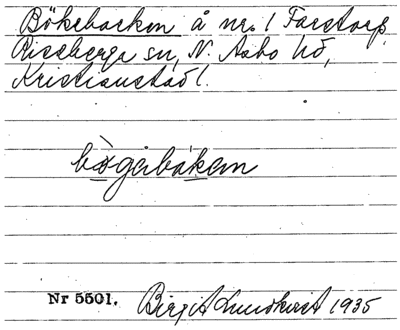 Bökebacken å nr. 1 Farstorp
Riseberga sn, N. Åsbo hd,
Kristianstad l.
bögebakem
Nr 5501. Birgit Lundkvist 1935